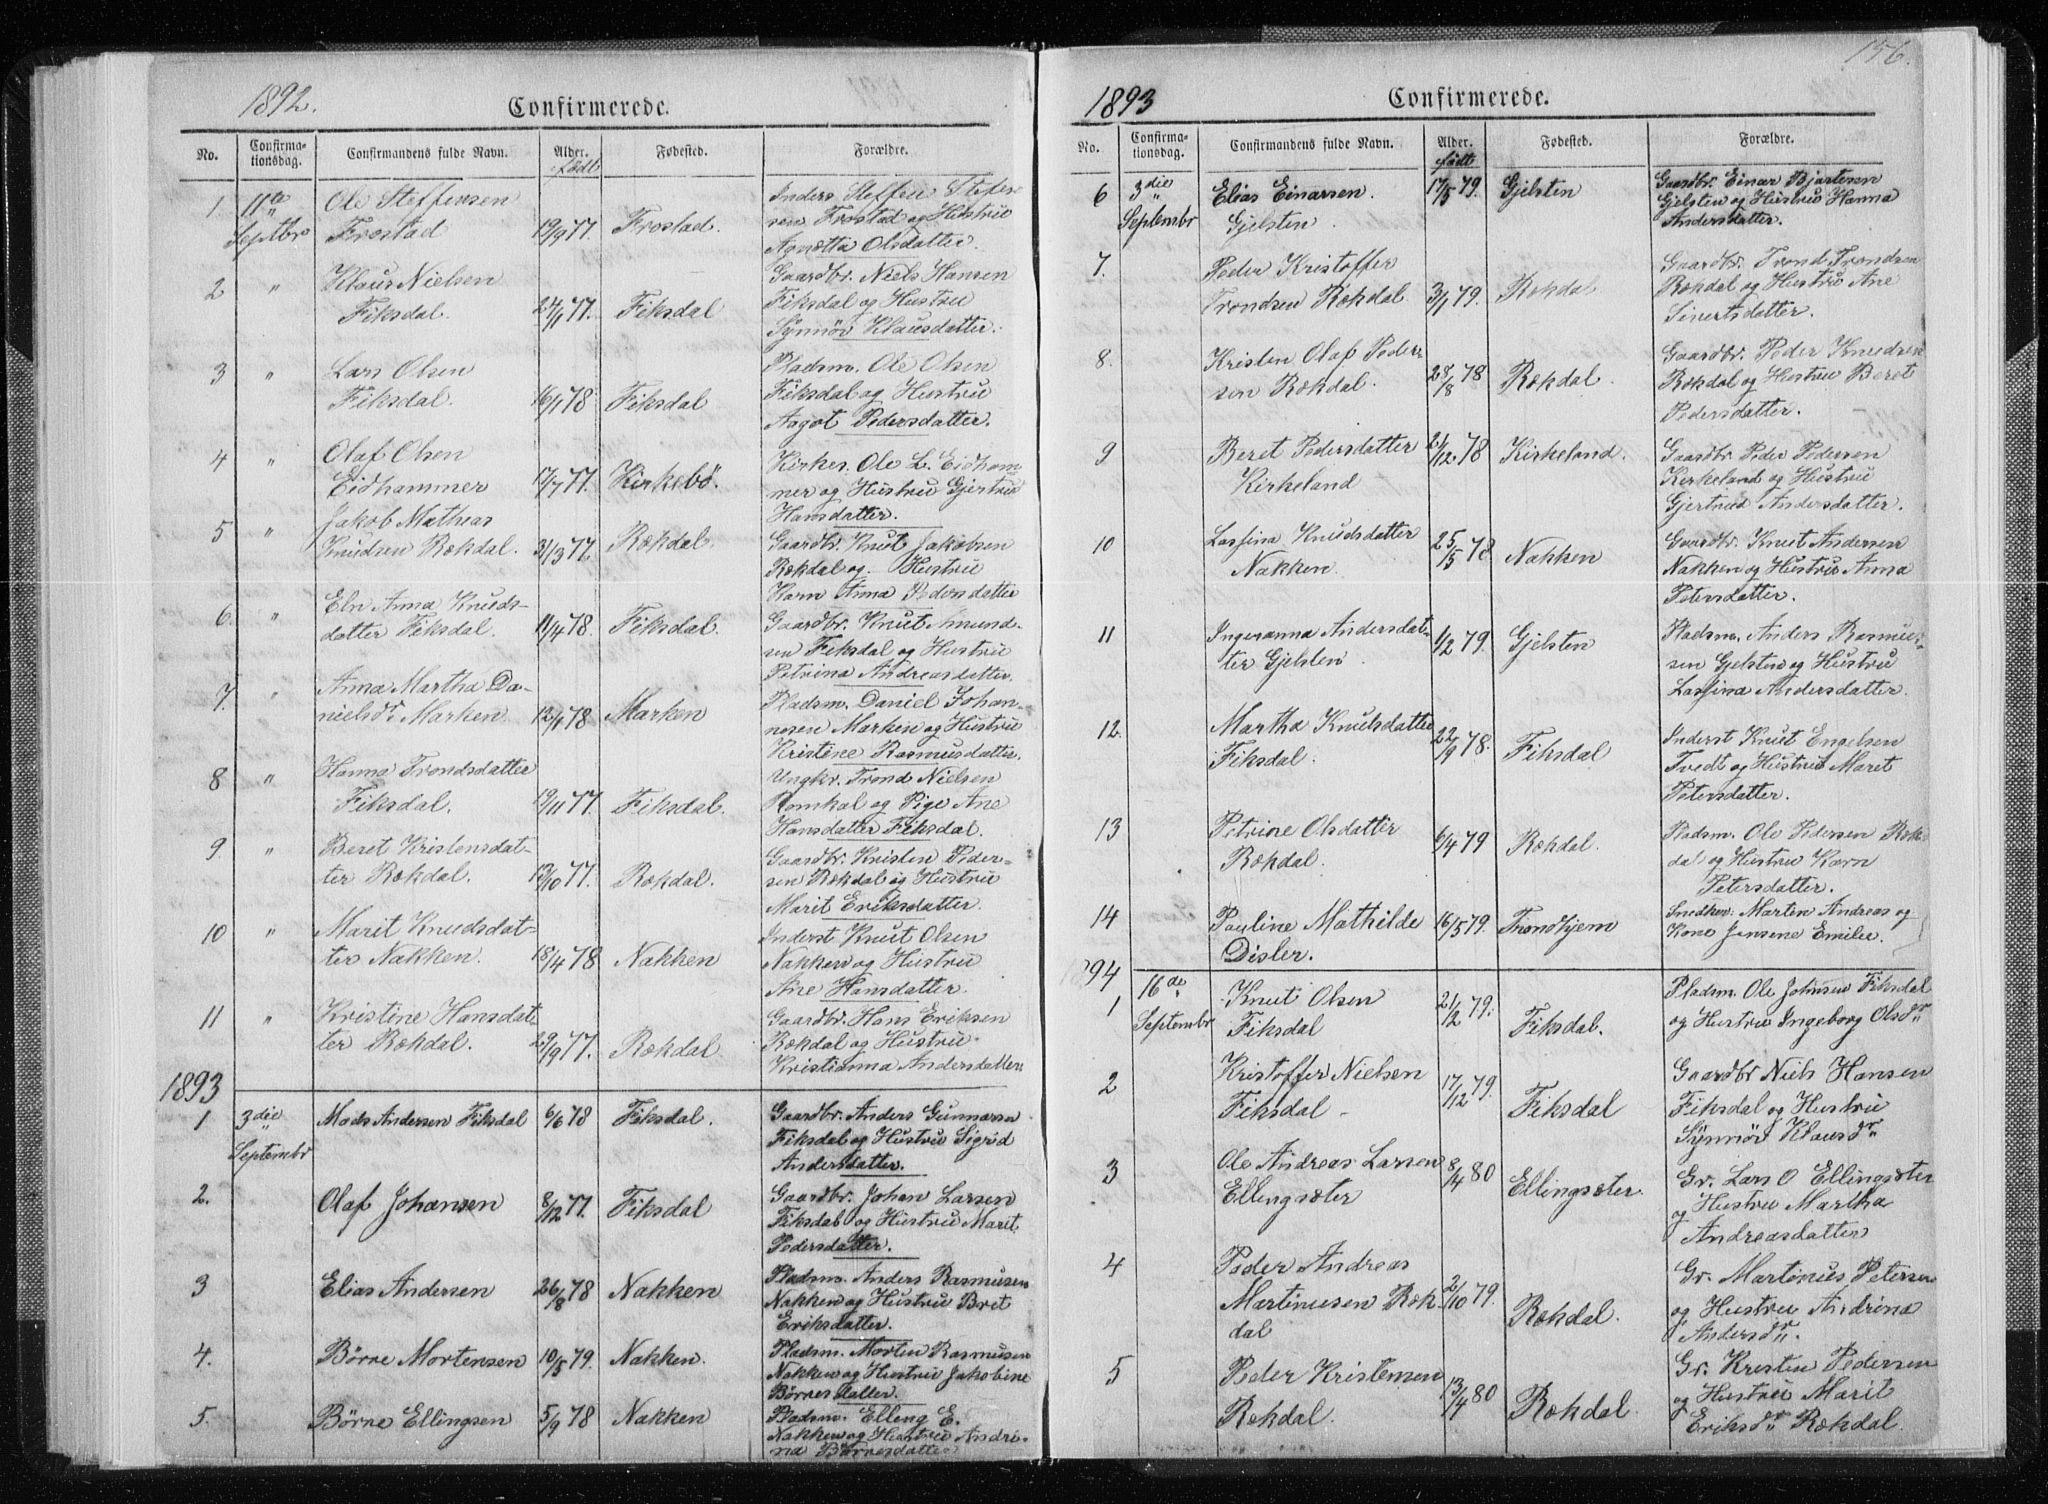 1892.
Confirmerede.
No. Confirmationsdag. Confirmandens fulde Navn. Alder. født Fødested. Forældre.
1 11te Septbr Ole Steffensen Frostad 19/9 77. Frostad. Inders Steffen Steffensen Frostad og Hustru Agnetta Olsdatter.
2 " Klaus Nielsen Fiksdal. 24/1 77. Fiksdal Gaardbr. Niels Hansen Fiksdal og Hustru Synnöv Klausdatter.
3 " Lars Olsen Fiksdal. 16/1 78 Fiksdal Pladsm. Ole Olsen Fiksdal og Hustru Aagot Pedersdatter.
4 " Olaf Olsen Eidhammer 17/7 77. Kirkebö. Kirkes. Ole L. Eidhammer og Hustru Gjertrud Hansdatter.
5 " Jakob Mathias Knudsen Rekdal. 31/3 77. Rekdal. Gaardbr. Knut Jakobsen Rekdal og Hustru Karn Anna Pedersdatter
6. " Eln Anna Knudsdatter Fiksdal. 11/4 78. Fiksdal. Gaardbr. Knut Amundsen Fiksdal og Hustru Petrina Andreasdatter
7. " Anna Martha Danielsdr. Marken 12/1 78 Marken Pladsm. Daniel Johannesen Marken og Hustru Kristine Rasmusdatter.
8 " Hanna Trondsdatter Fiksdal. 19/11 77. Fiksdal. Ungkr. Trond Nielsen Romkal og Pige Ane Hansdatter Fiksdal.
9 " Beret Kristensdatter Rekdal. 13/10 77. Rekdal. Gaardbr. Kristen Pedersen Rekdal og Hustru Marit Eriksdatter.
10 " Marit Knudsdatter Nakken. 18/4 78 Nakken Inderst Knut Olsen Nakken og Hustru Ane Hansdatter.
11 " Kristine Hansdatter Rekdal. 29/9 77. Rekdal. Gaardbr. Hans Eriksen Rekdal og Hustru Kristianna Andersdatter
1893
1 3die Septembr Mads Andersen Fiksdal 6/6 78 Fiksdal. Gaardbr. Anders Gunnarsn Fiksdal og Hustru Sigrid Andersdatter.
2. Olaf Johansen 8/12 77. Fiksdal Gaardbr. Johan Larsen Fiksdal og Hustru Marit Pedersdatter.
3 Elias Andersen 26/8 78 Nakken Pladsm. Anders Rasmusen Nakken og Hustru Bret Eriksdatter.
4. Börre Mortensen 10/5 79. Nakken. Pladsm. Morten Rasmusen Nakken og Hustru Jakobine Börresdatter.
5. Börre Ellingsen 5/9 78 Nakken Pladsm. Elling E. Nakken og Hustru Andrina Börresdatter
156.
1893
Confirmerede.
No. Confirmationsdag. Confirmandens fulde Navn. Alder. født Fødested. Forældre.
6 3die Septembr Elias Einarsen Gjelsten. 17/5 79. Gjelsten Gaardbr. Einar Bjartesen Gjelsten og Hustru Hanna Andersdatter.
7. Peder Kristoffer Trondsen Rekdal 3/1 79. Rekdal Gaardbr. Trond Trondsen Rekdal og Hustru Ane Sivertsdatter.
8. Kristen Olaf Pedersen Rekdal. 28/8 78 Rekdal. Gaardbr. Peder Knudsen Rekdal og Hustru Beret Pedersdatter.
9 Beret Pedersdatter Kirkeland 21/12 78 Kirkeland. Gaardbr. Peder Pedersen Kirkeland og Hustru Gjertrud Andersdatter.
10 Lassina Knudsdatter Nakken. 25/5 78 Nakken Gaardbr. Knut Andersen Nakken og Hustru Anna Petersdatter.
11 Ingeranna Andersdatter Gjelsten. 1/2 79. Gjelsten Pladsm. Anders Rasmussen Gjelsten og Hustru Lassina Andersdatter.
12. Martha Knutsdatter Fiksdal. 22/9 78. Fiksdal Inderst Knut Engelsen Tvedt og Hustru Maret Petersdatter.
13 Petrine Olsdatter Rekdal. 6/4 79 Rekdal. Pladsm. Ole Pedersen Rekdal og Hustru Karn Petersdatter.
14 Pauline Mathilde Disler. 16/5 79. Trondhjem Snedker. Martin Andreas og Kone Jensene Emilie.
1894
1 16de Septembr Knut Olsen Fiksdal 21/12 79. Fiksdal. Pladsm. Ole Johnsen Fiksdal og Hustru Ingeborg Olsdr
2 Kristoffer Nielsen Fiksdal 17/12 79. Fiksdal Gaardbr Niels Hansen Fiksdal og Hustru Synnöv Klausdr
3 Ole Andreas Larsen Ellingsæter 8/4 80 Ellingsæter. Gr. Lars O Ellingsæter og Hustru Martha Andreasdatter
4 Peder Andreas Martinusen Rekdal 2/10 79. Rekdal. Gr. Martinus Petersen og Hustru Andrina Andersdr.
5 Peder Kristensen Rekdal. 13/4 80 Rekdal. Gr. Kristen Pedersen og Hustru Marit Eriksdr Rekdal.